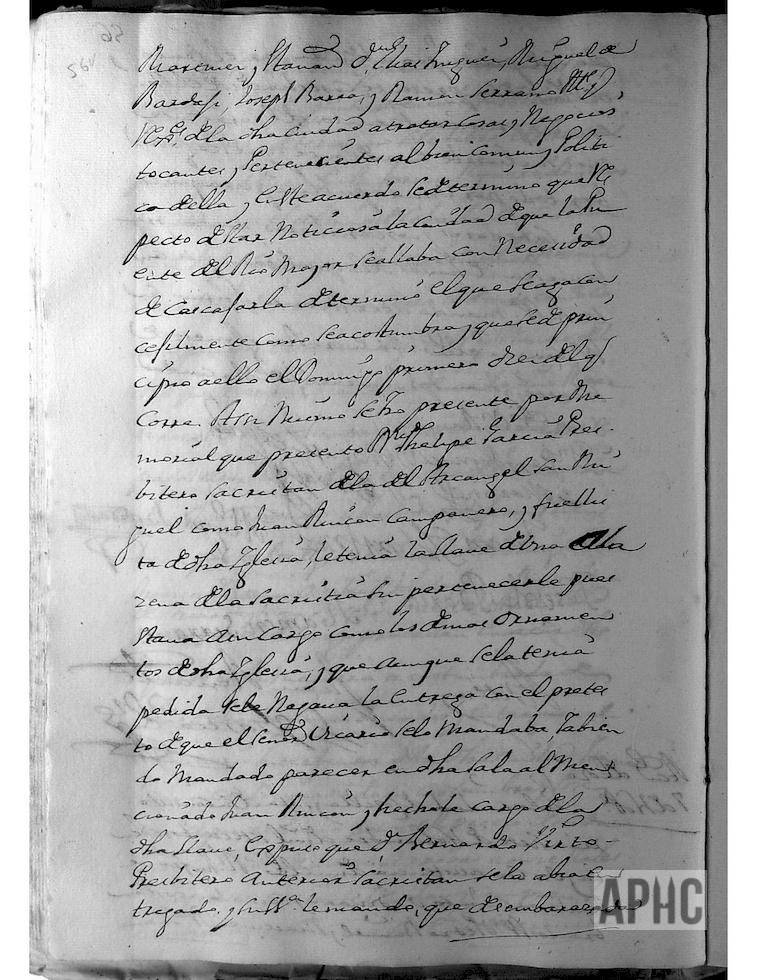 Martinez, y Stauan dn. Elias Yuguer, Miguel de
Bardaxi, Joseph Barea, y Ramon Serrano
de la dha Ciudad a tratar Cosas, y Negocios
tocantes, y Pertenecientes al bien Comun y Politi
co della, y en Ste acuerdo se determino que Res
pecto de Star Noticiosa la Ciudad de que la Pu
ente del Rio Mayor Seallaba con Necesidad
de Cascasarla determinó el que Seaga con
cegilmente como Seacostumbra, y que se de prin
cipio aello el Domingo primero diez del qe
Corre. Assi Mismo se hizo presente por Me
morial que presento Dn. Phelipe Garcia Pres
bitero Sacristan de la del Arcangel San Mi
guel como Juan Rincon Campanero, y fuelli
ta de dha Iglesia, le tenia la llave de Una Ala
zena de la Sacristia Sin pertenecerle pues
Staua a su Cargo como los demas Ornamen
tos de dha Iglesia, y que aunque Se la tenia
pedida Se le Negaua la entrega con el pretes
to de que el Señor Vicario Se lo Mandaba, habien
do Mandado parecer en dha Sala al Ment
cionado Juan Rincon, y hechole cargo de la
dha llave, Expuso que Dn. Bernardo Pinto
Presbitero Anterior Sacristan Se la abia en
tregado, y le mando, que desembarazado
APHC